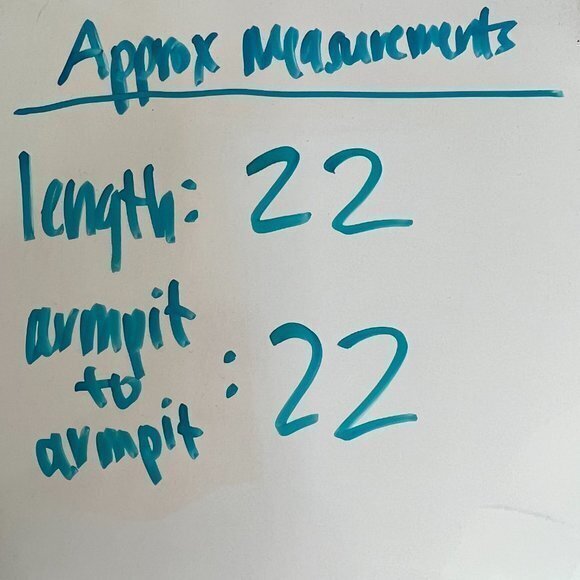 Approx Measurements
length: 22
armpit
to : 22
armpit